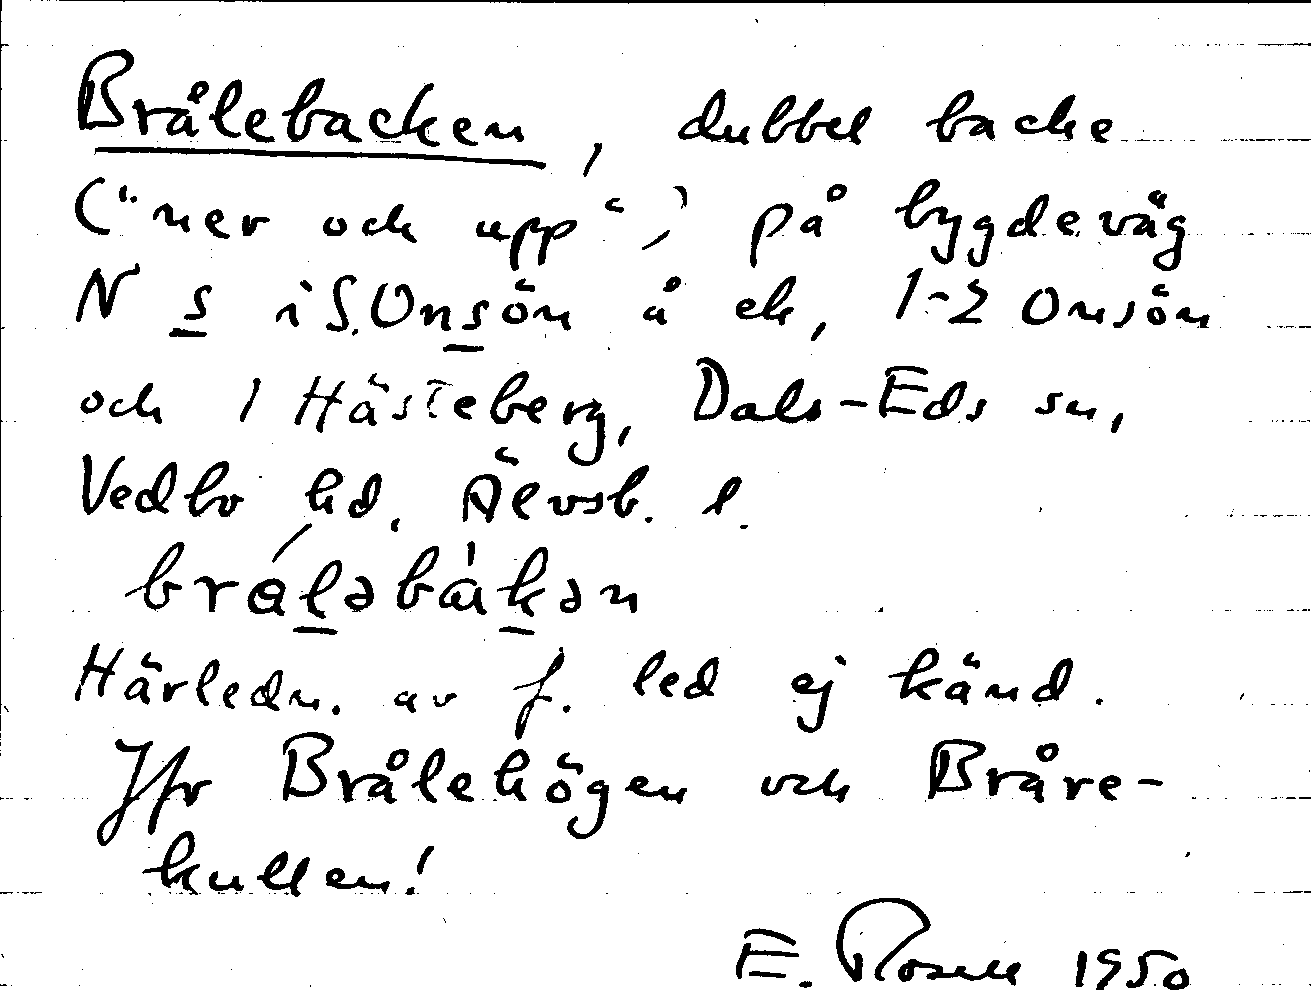 Brålebacken, dubbel backe
("ner och upp") på bygdeväg
N s i S. Onsön å ek. 1-2 Onsön
och 1 Hästeberg, Dals-Eds sn,
Vedbo hd. Älvsb. l.
brålǝbàkǝn
Härledn. av f. led ej känd.
Jfr Brålehögen och Bråre-
kullen!
E. Rosell 1950